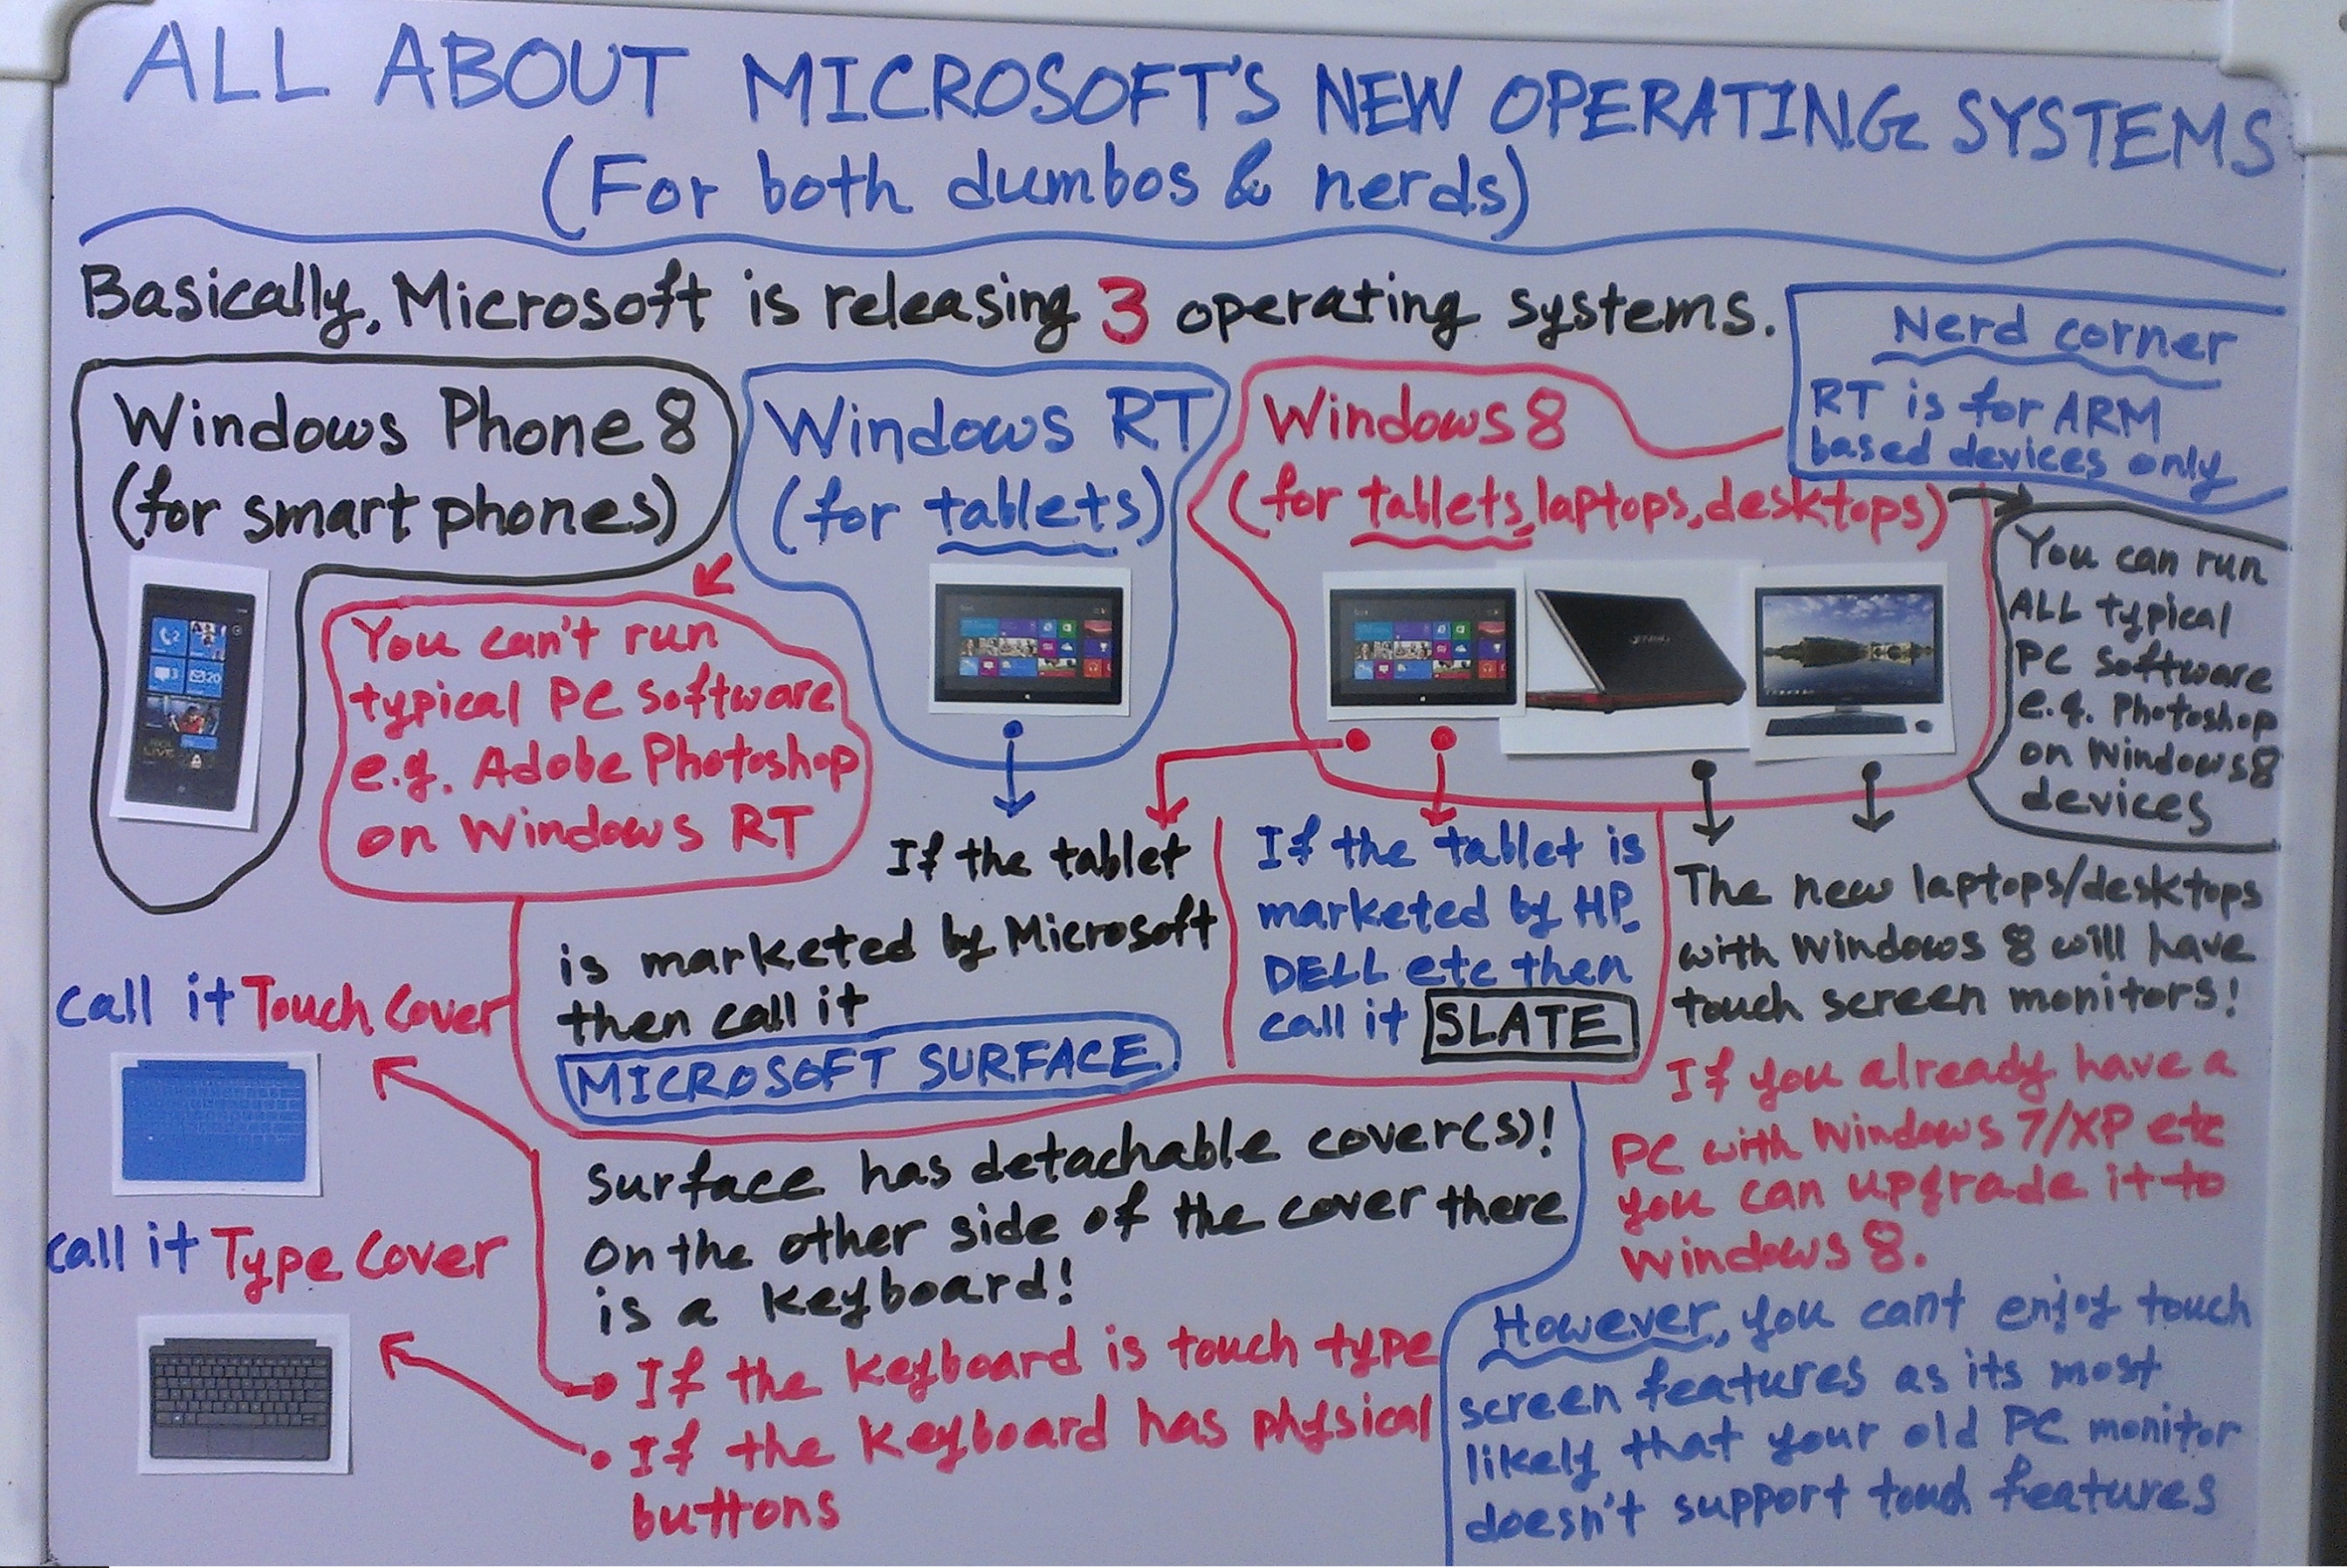 ALL ABOUT MICROSOFT'S NEW OPERATING SYSTEMS
(For both dumbos & nerds)
Basically, Microsoft is releasing 3 operating systems.
Nerd corner
RT is for ARM
based devices only
Windows Phone 8
(for smart phones)
Windows RT
(for tablets)
Windows 8
(for tablets, laptops, desktops)
You can't run
typical PC software
e.g. Adobe Photoshop
on Windows RT
You can run
ALL typical
PC software
e.g. Photoshop
on Windows 8
devices
If the tablet
is marketed by Microsoft
then call it
MICROSOFT SURFACE
If the tablet is
marketed by HP,
DELL etc then
call it SLATE
The new laptops/desktops
with Windows 8 will have
touch screen monitors!
If you already have a
PC with Windows 7/XP etc
you can upgrade it to
Windows 8.
However, you cant enjoy touch
screen features as its most
likely that your old PC monitor
doesn't support touch features
Surface has detachable cover(s)!
On the other side of the cover there
is a keyboard!
If the keyboard is touch type
If the keyboard has physical
buttons
call it Touch Cover
call it Type Cover